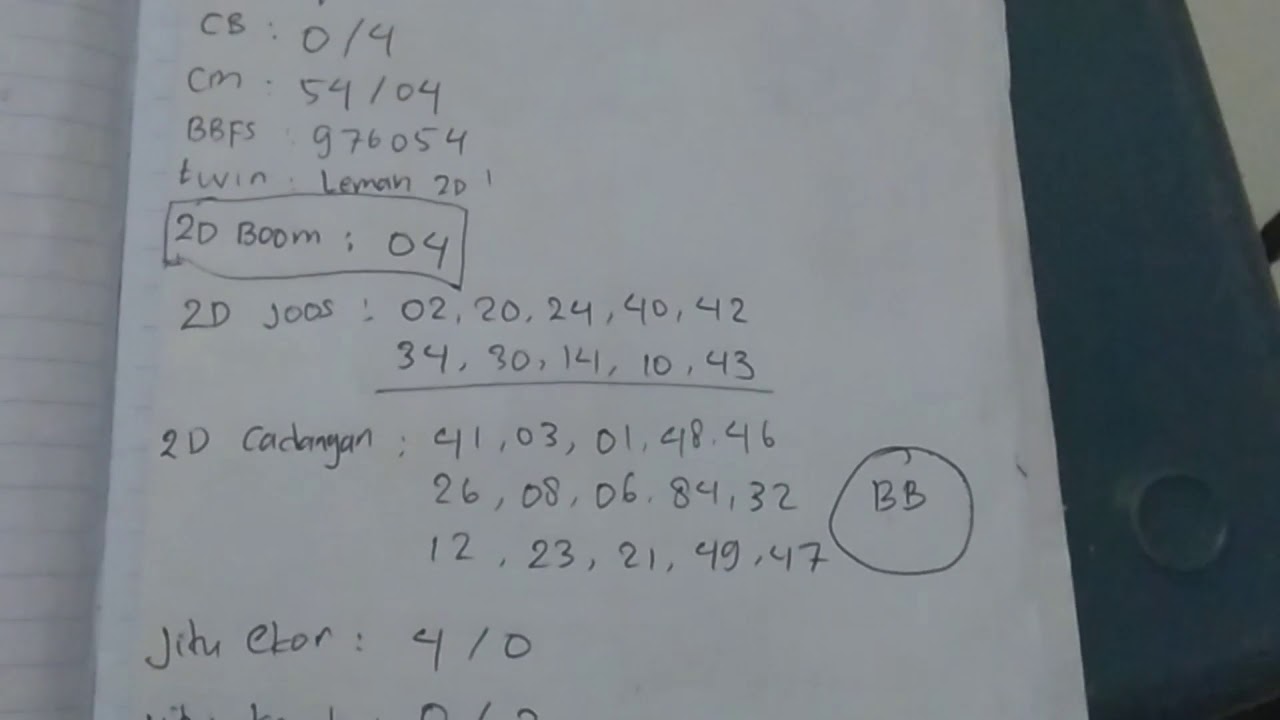 CB : 0/4
CM : 54/04
BBFS : 976054
twin : Leman 2D
2D Boom : 04
2D Joos : 02, 20, 24, 40, 42
34, 30, 14, 10, 43
2D Cadangan : 41, 03, 01, 48. 46
26, 08, 06. 84, 32
BB
12, 23, 21, 49, 47
Jitu Ekor : 4/0